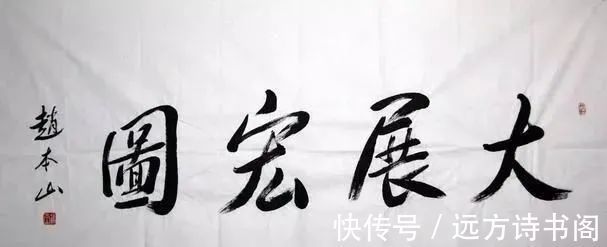 大展宏圖
趙本山
快传号 / 远方诗书阁